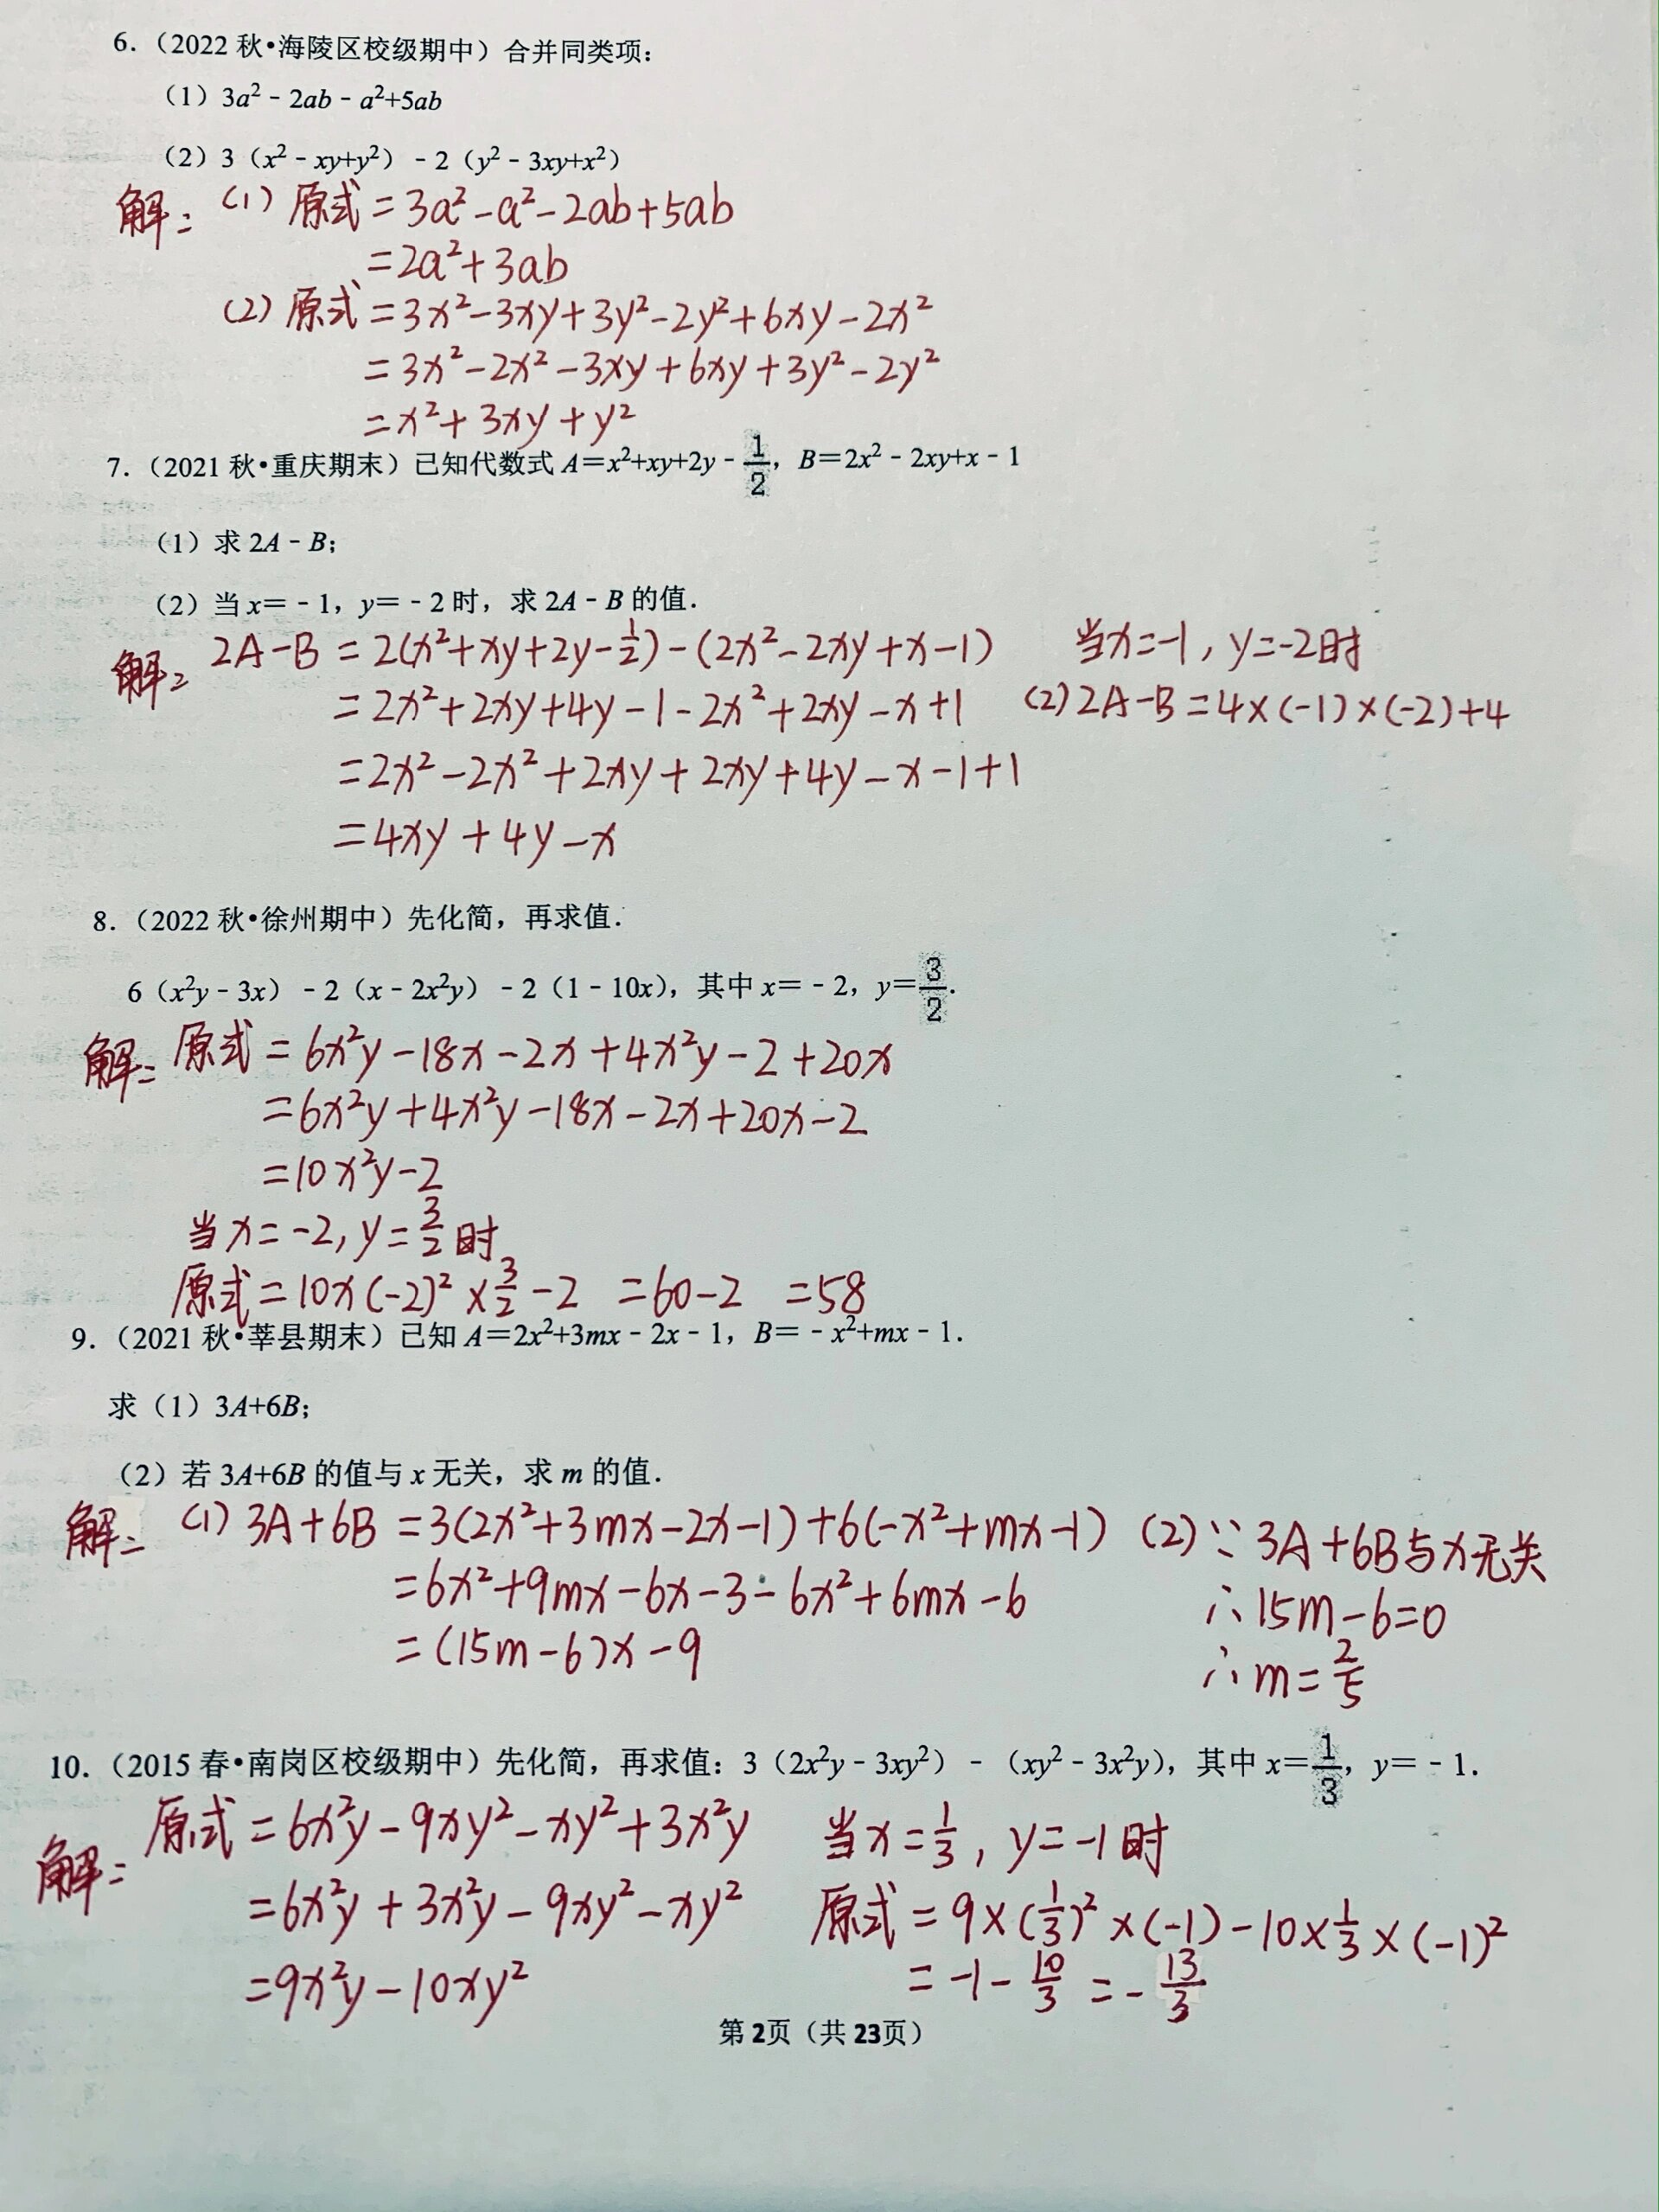 6.（2022 秋•海陵区校级期中）合并同类项：
（1）3a²﹣2ab﹣a²+5ab
（2）3（x²﹣xy+y²）﹣2（y²﹣3xy+x²）
解：(1) 原式 = 3a²-a²-2ab+5ab
=2a²+3ab
(2) 原式 = 3x²-3xy+3y²-2y²+6xy-2x²
= 3x²-2x²-3xy+6xy+3y²-2y²
= x²+3xy+y²
7.（2021 秋•重庆期末）已知代数式 A＝x²+xy+2y﹣1/2，B＝2x²﹣2xy+x﹣1
（1）求 2A﹣B；
（2）当 x＝﹣1，y＝﹣2 时，求 2A﹣B 的值．
解：2A-B = 2(x²+xy+2y-1/2)-(2x²-2xy+x-1)
= 2x²+2xy+4y-1-2x²+2xy-x+1
=2x²-2x²+2xy+2xy+4y-x-1+1
=4xy+4y-x
当x=-1, y=-2时
(2) 2A-B=4×(-1)×(-2)+4
8.（2022 秋•徐州期中）先化简，再求值．
6（x²y﹣3x）﹣2（x﹣2x²y）﹣2（1﹣10x），其中 x＝﹣2，y＝3/2．
解：原式 = 6x²y-18x-2x+4x²y-2+20x
=6x²y+4x²y-18x-2x+20x-2
=10x²y-2
当x=-2, y=3/2时
原式=10×(-2)²×3/2-2 =60-2 =58
9.（2021 秋•莘县期末）已知 A＝2x²+3mx﹣2x﹣1，B＝﹣x²+mx﹣1．
求（1）3A+6B；
（2）若 3A+6B 的值与 x 无关，求 m 的值．
解：(1) 3A+6B =3(2x²+3mx-2x-1)+6(-x²+mx-1)
=6x²+9mx-6x-3-6x²+6mx-6
=(15m-6)x-9
(2)∵3A+6B与x无关
∴15m-6=0
∴m=2/5
10.（2015 春•南岗区校级期中）先化简，再求值：3（2x²y﹣3xy²）﹣（xy²﹣3x²y），其中 x＝1/3，y＝﹣1．
解：原式 = 6x²y-9xy²-xy²+3x²y
=6x²y+3x²y-9xy²-xy²
=9x²y-10xy²
当x=1/3, y=-1时
原式=9×(1/3)²×(-1)-10×1/3×(-1)²
=-1-10/3 =-13/3
第 2页（共 23页）